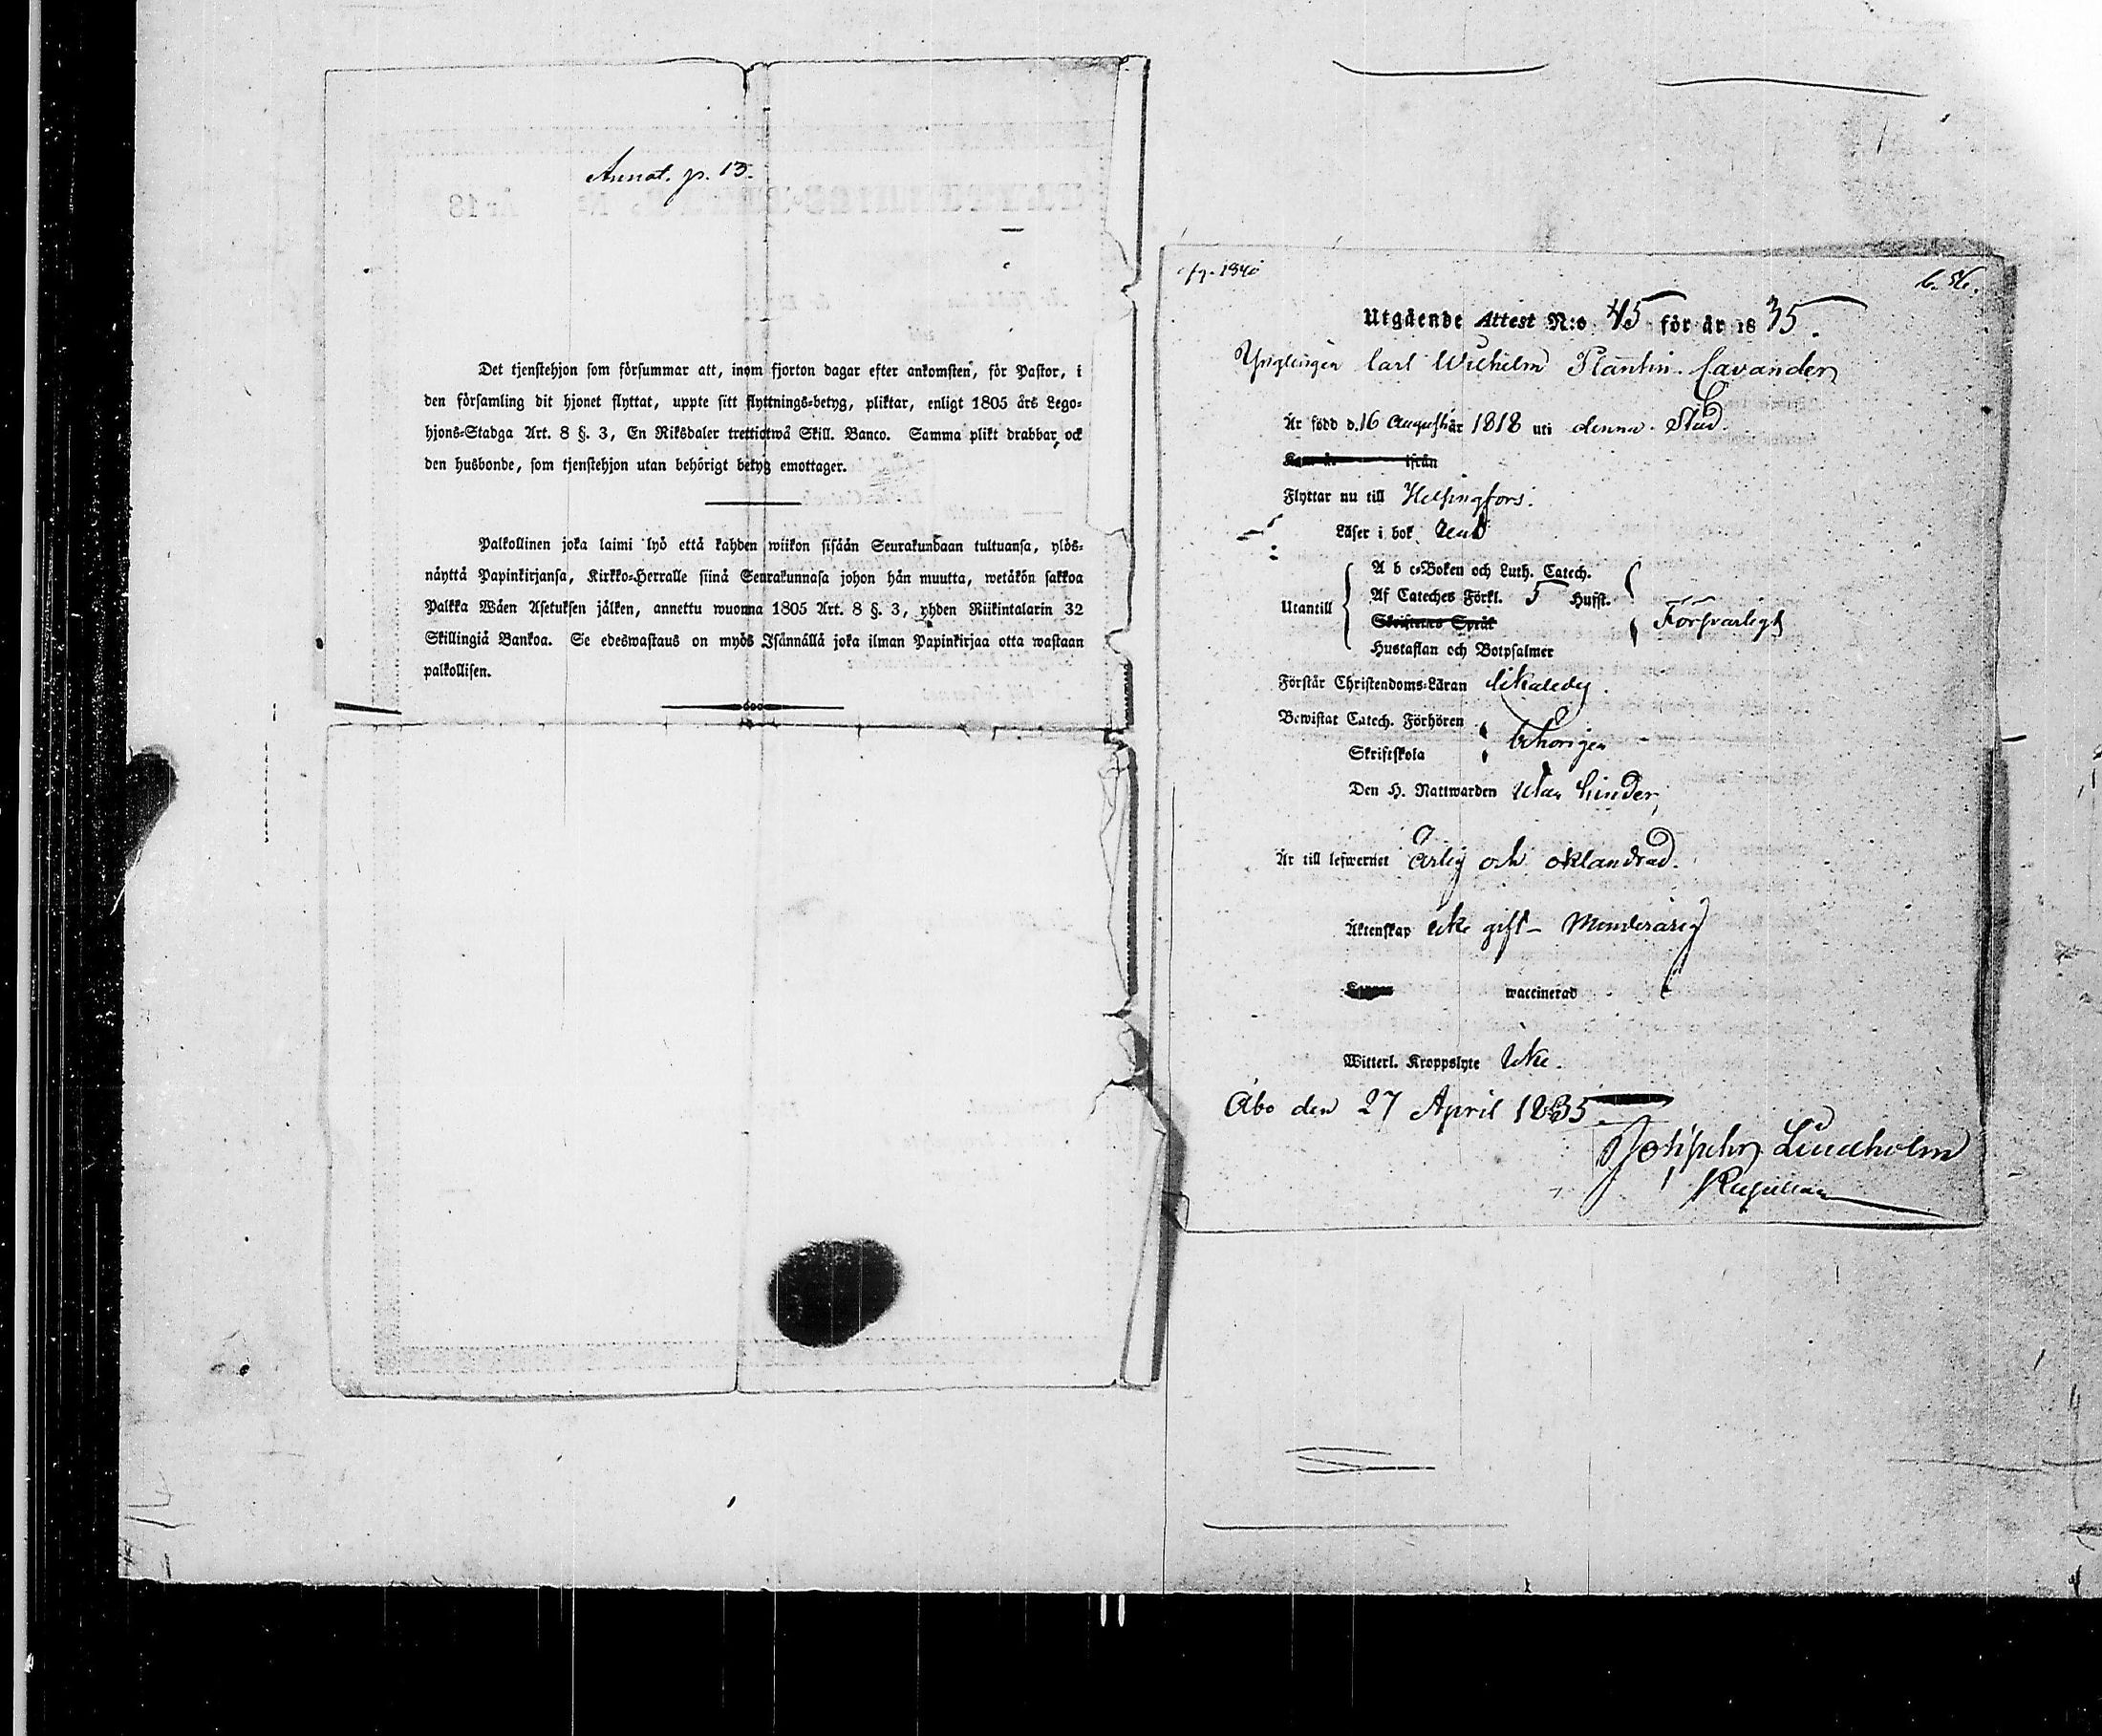 Annot. p. 13.
Det tjenstehjon som försummar att, inom fjorton dagar efter ankomsten, för Pastor, i
den församling dit hjonet flyttat, uppte sitt flyttnings-betyg, pliktar, enligt 1805 års Lego-
hjons-Stadga Art. 8 §. 3, En Riksdaler trettiotwå Skill. Banco. Samma plikt drabbar ock
den husbonde, som tjenstehjon utan behörigt betyg emottager.
Palkollinen joka laimi lyö että kahden wiikon sisään Seurakundaan tultuansa, ylös-
näyttä Papinkirjansa, Kirkko-Herralle siinä Seurakunnasa johon hän muutta, wetäkön sakkoa
Palkka Wäen Asetuksen jälken, annettu wuonna 1805 Art. 8 §. 3, yhden Riikintalarin 32
Skillingiä Bankoa. Se edeswastaus on myös Isännällä joka ilman Papinkirjaa otta wastaan
palkollisen.
Utgående Attest N:o 45 för år 1835.
Ynglingen Carl Wilhelm Plantin Cavander
Är född d. 16 Augusti år 1818 uti denna Stad.
Flyttar nu till Helsingfors.
Läser i bok
A b c-Boken och Luth. Catech.
Af Cateches Förkl. 5 Hufst.
Utantill Försvarligt
Skriftenes Språk
Hustaflan och Botpsalmer
Förstår Christendoms-Läran likaledes.
Bewistat Catech. Förhören
behörigen
Skriftskola
Den H. Nattwarden utan hinder
Är till lefwernet ärlig och oklandrad.
Äktenskap icke gift - Minderårig
waccinerad
Witterl. Kroppslyte icke.
Åbo den 27 April 1835
Lindholm